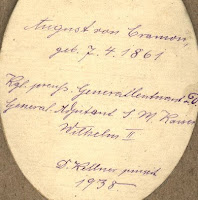 August von Cramon,
geb. 7. 4. 1861
Kgl. preuß. Generalleutnant a. D.
General Adjutant S. M. Kaiser
Wilhelm II
pinxit
1938